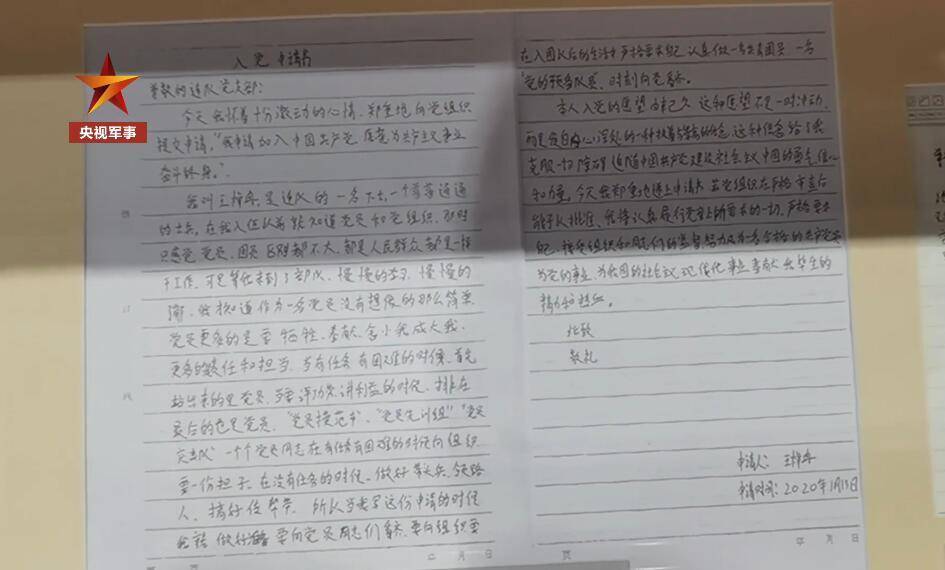 央视军事
入党申请书
尊敬的连队党支部：
今天我怀着十分激动的心情，郑重地向党组织
提交申请，“我申请加入中国共产党，愿意为共产主义事业
奋斗终身。”
我叫王焯冉，是连队的一名下士，一个普普通通
的士兵，在我入伍以前就知道党员和党组织，那时
只感觉党员、团员区别都不大，都是人民群众都是一样
干工作，可是等我来到了部队，慢慢的学习，慢慢的
了解，我才知道作为一名党员没有想像的那么简单
党员更多的是要牺牲、奉献、舍小我成大我，
更多的责任和担当，当有任务有困难的时候，首先
站出来的是党员，当要评功、讲利益的时候，排在
最后的也是党员，“党员模范书”、“党员先训组”“党员
突击队”一个个党员同志在有任务有困难的时候向组织
要一份担子，在没有任务的时候，做好带头兵、领路
人，搞好传帮带，所以当我写这份申请的时候
我就做好 要向党员同志们看齐，要向组织要
年 月 日
页
在入团以后的生活中严格要求自己，认真做一名共青团员，一名
“党的预备队员”，时刻向党看齐。
本人入党的愿望由来已久，这种愿望不是一时冲动，
而是发自内心深处的一种执着 的信念，这种信念给了我
克服一切障碍，追随中国共产党建设社会主义中国的勇气、信心
和力量，今天我郑重地递上申请书，若党组织在严格审查后
能予以批准，我将认真履行党章上所要求的一切，严格要求
自己，接受组织和同志们的监督，努力成为一名合格的共产党员
为党的事业，为我国的社会主义现代化事业奉献我毕生的
精力和热血。
此致
敬礼
申请人：王焯冉
申请时间：2020年1月13日
页
年 月 日